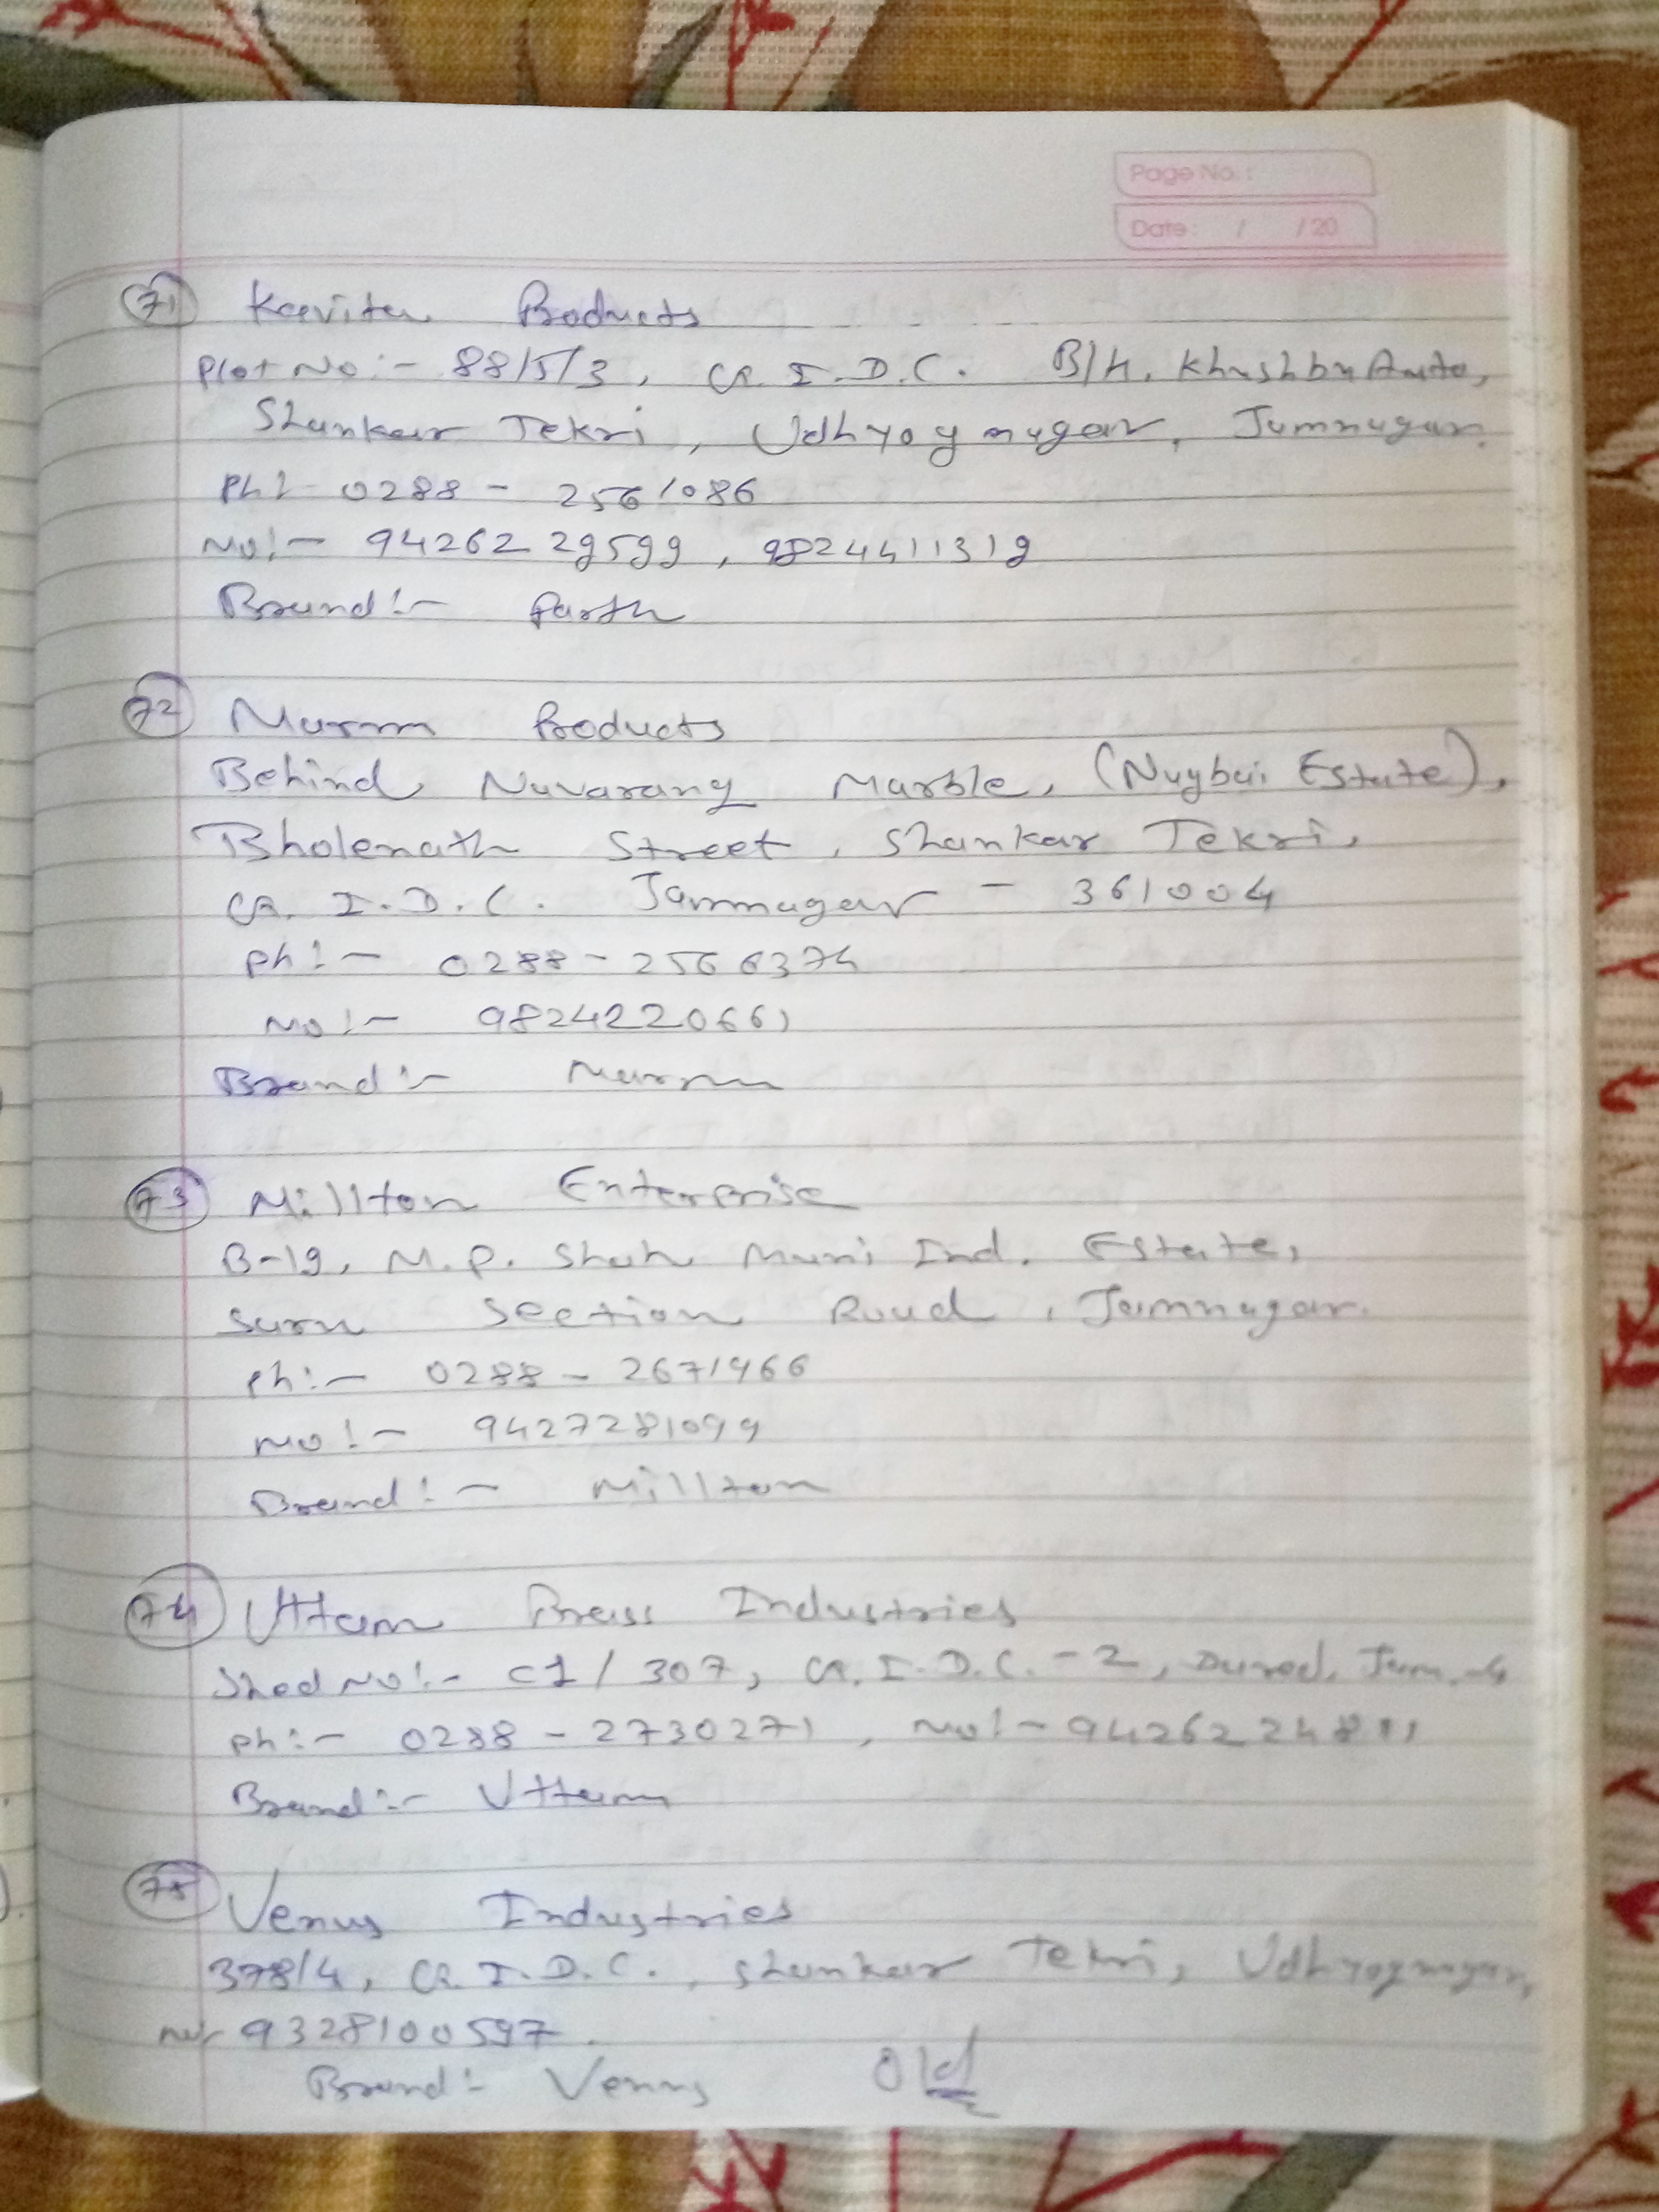 Page No. :
Date : / /20
71 Kavita Products
Plot No :- 88/5/3, G.I.D.C. B/h. Khushbu Auto,
Shankar Tekri, Udhyognagar, Jamnagar.
Ph :- 0288 - 2561086
Mo :- 9426229599, 9824411319
Brand :- Parth
72 Products
Behind Navarang Marble, (Nagbai Estate),
Bholenath Street, Shankar Tekri,
G.I.D.C. Jamnagar - 361004
Ph :- 0288 - 2566374
Mo :- 9824220661
Brand :-
73 Millton Enterprise
B-19, M.P. Shah Muni Ind. Estate,
Saru Section Road, Jamnagar.
Ph :- 0288 - 2671466
Mo :- 9427281099
Brand :- Millton
74 Uttam Brass Industries
Shed No :- C1/307, G.I.D.C. - 2, Dared, Jam.-4
Ph :- 0288 - 2730271, Mo :- 9426224811
Brand :- Uttam
75 Venus Industries
378/4, G.I.D.C., Shankar Tekri, Udhyognagar,
Mo :- 9328100597.
Brand :- Venus Old